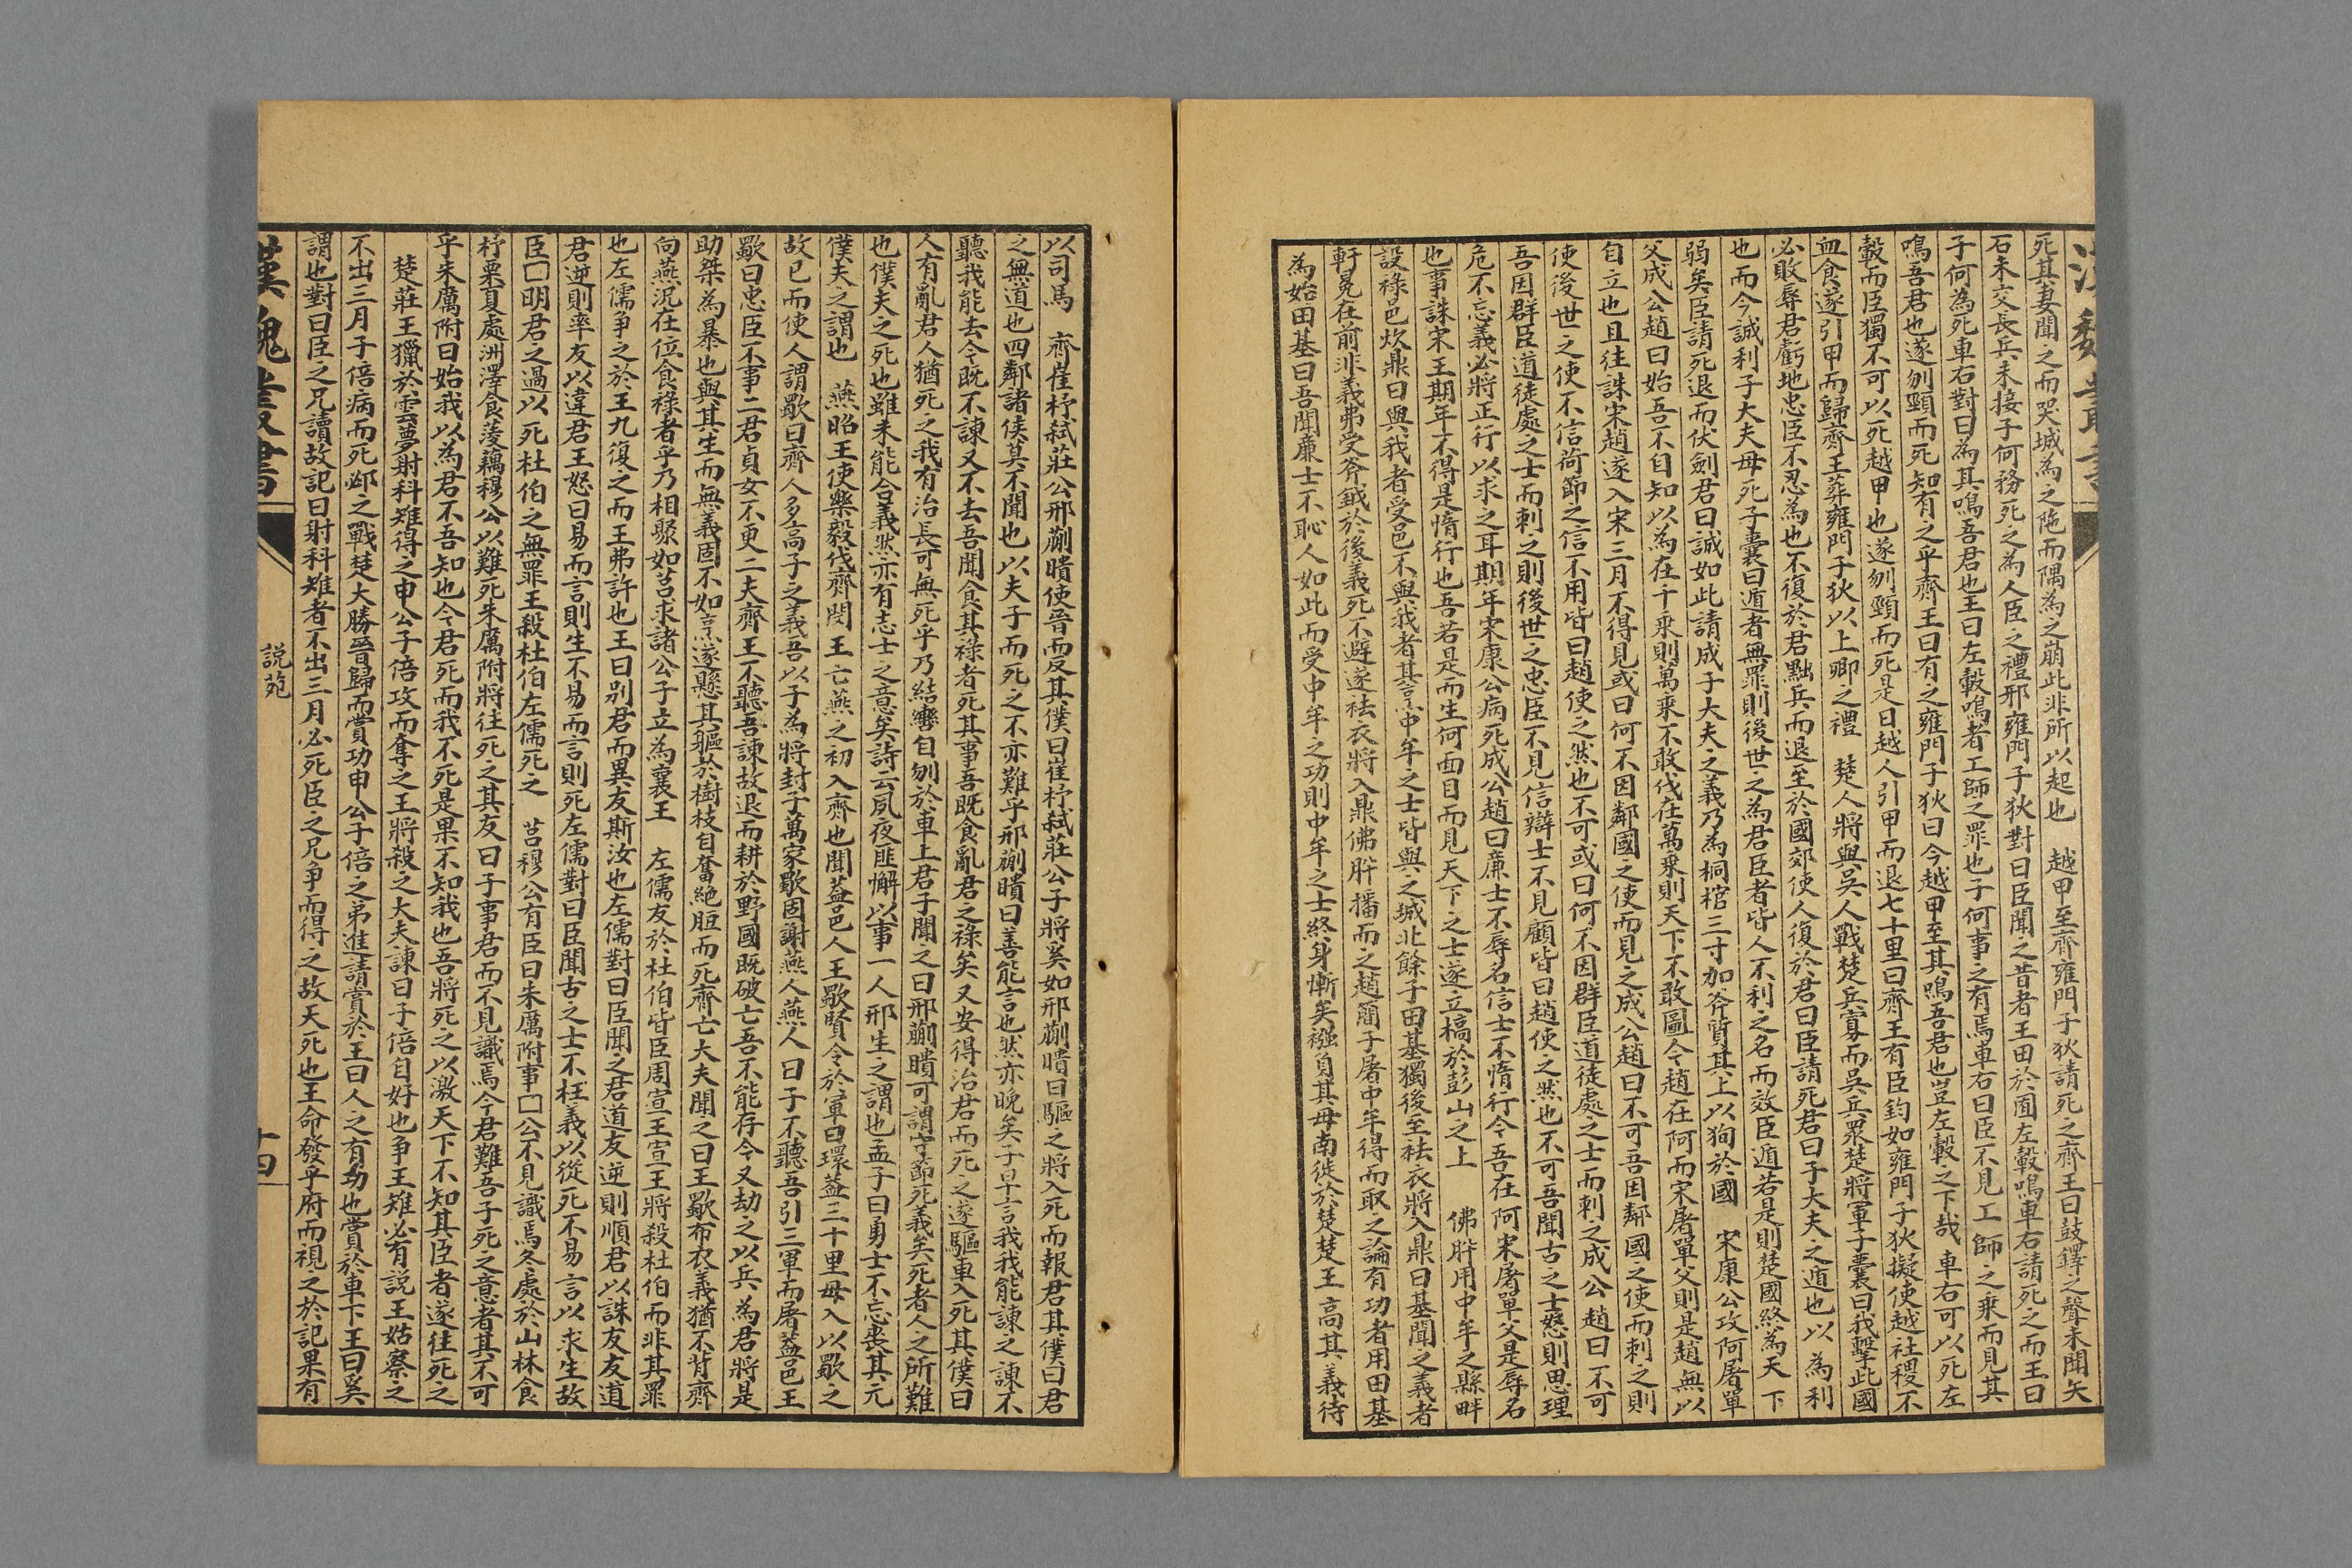 死其妻聞之而哭城為之陁而隅為之崩此非所以起也　越甲至齊雍門子狄請死之齊王曰鼓鐸之聲未聞矢
石未交長兵未接子何務死之為人臣之禮邪雍門子狄對曰臣聞之昔者王田於囿左轂鳴車右請死之而王曰
子何為死車右對曰為其鳴吾君也王曰左轂鳴者工師之罪也子何事之有焉車右曰臣不見工師之乘而見其
鳴吾君也遂刎頸而死知有之乎齊王曰有之雍門子狄曰今越甲至其鳴吾君也豈左轂之下哉　車右可以死左
轂而臣獨不可以死越甲也遂刎頸而死是日越人引甲而退七十里曰齊王有臣鈞如雍門子狄擬使越社稷不
血食遂引甲而歸齊王葬雍門子狄以上卿之禮　楚人將與吳人戰楚兵寡而吳兵眾楚將軍子囊曰我擊此國
必敗辱君虧地忠臣不忍為也不復於君黜兵而退至於國郊使人復於君曰臣請死君曰子大夫之遁也以為利
也而今誠利子大夫毋死子囊曰遁者無罪則後世之為君臣者皆入不利之名而效臣遁若是則楚國終為天下
弱矣臣請死退而伏劍君曰誠如此請成子大夫之義乃為桐棺三寸加斧質其上以狥於國　宋康公攻阿屠單
父成公趙曰始吾不自知以為在千乘則萬乘不敢伐在萬乘則天下不敢圖今趙在阿而宋屠單父則是趙無以
自立也且往誅宋趙遂入宋三月不得見或曰何不因鄰國之使而見之成公趙曰不可吾因鄰國之使而刺之則
使後世之使不信荷節之信不用皆曰趙使之然也不可或曰何不因群臣道徒處之士而刺之成公趙曰不可
吾因群臣道徒處之士而刺之則後世之忠臣不見信辯士不見顧皆曰趙使之然也不可吾聞古之士怒則思理
危不忘義必將正行以求之耳期年宋康公病死成公趙曰廉士不辱名信士不惰行今吾在阿宋屠單父是辱名
也事誅宋王期年不得是惰行也吾若是而生何面目而見天下之士遂立槁於彭山之上　佛肸用中牟之縣畔
設祿邑炊鼎曰與我者受邑不與我者其烹中牟之士皆與之城北餘子田基獨後至袪衣將入鼎曰基聞之義者
軒冕在前非義弗受斧鉞於後義死不避遂袪衣將入鼎佛肸播而之趙簡子屠中牟得而取之論有功者用田基
為始田基曰吾聞廉士不恥人如此而受中牟之功則中牟之士終身慚矣襁負其母南徙於楚楚王高其義待
以司馬　齊崔杼弑莊公邢蒯瞶使晉而反其僕曰崔杼弑莊公子將奚如邢蒯瞶曰驅之將入死而報君其僕曰君
之無道也四鄰諸侯莫不聞也以夫子而死之不亦難乎邢蒯瞶曰善能言也然亦晚矣子早言我我能諫之諫不
聽我能去今既不諫又不去吾聞食其祿者死其事吾既食亂君之祿矣又安得治君而死之遂驅車入死其僕曰
人有亂君人猶死之我有治長可無死乎乃結轡自刎於車上君子聞之曰邢蒯瞶可謂守節死義矣死者人之所難
也僕夫之死也雖未能合義然亦有志士之意矣詩云夙夜匪懈以事一人邢生之謂也孟子曰勇士不忘喪其元
僕夫之謂也　燕昭王使樂毅伐齊閔王亡燕之初入齊也聞蓋邑人王歜賢令於軍曰環蓋三十里毋入以歜之
故已而使人謂歜曰齊人多高子之義吾以子為將封子萬家歜固謝燕人燕人曰子不聽吾引三軍而屠蓋邑王
歜曰忠臣不事二君貞女不更二夫齊王不聽吾諫故退而耕於野國既破亡吾不能存今又劫之以兵為君將是
助桀為暴也與其生而無義固不如烹遂懸其軀於樹枝自奮絕脰而死齊亡大夫聞之曰王歜布衣義猶不背齊
向燕況在位食祿者乎乃相聚如莒求諸公子立為襄王　左儒友於杜伯皆臣周宣王宣王將殺杜伯而非其罪
也左儒爭之於王九復之而王弗許也王曰別君而異友斯汝也左儒對曰臣聞之君道友逆則順君以誅友友道
君逆則率友以違君王怒曰易而言則生不易而言則死左儒對曰臣聞古之士不枉義以從死不易言以求生故
臣□明君之過以死杜伯之無罪王殺杜伯左儒死之　莒穆公有臣曰朱厲附事□公不見識焉冬處於山林食
杼栗夏處洲澤食蔆藕穆公以難死朱厲附將往死之其友曰子事君而不見識焉今君難吾子死之意者其不可
乎朱厲附曰始我以為君不吾知也今君死而我不死是果不知我也吾將死之以激天下不知其臣者遂往死之
楚莊王獵於雲夢射科雉得之申公子倍攻而奪之王將殺之大夫諫曰子倍自好也爭王雉必有説王姑察之
不出三月子倍病而死邲之戰楚大勝晉歸而賞功申公子倍之弟進請賞於王曰人之有功也賞於車下王曰奚
謂也對曰臣之兄讀故記曰射科雉者不出三月必死臣之兄爭而得之故夭死也王命發乎府而視之於記果有
漢魏叢書
説苑
十四